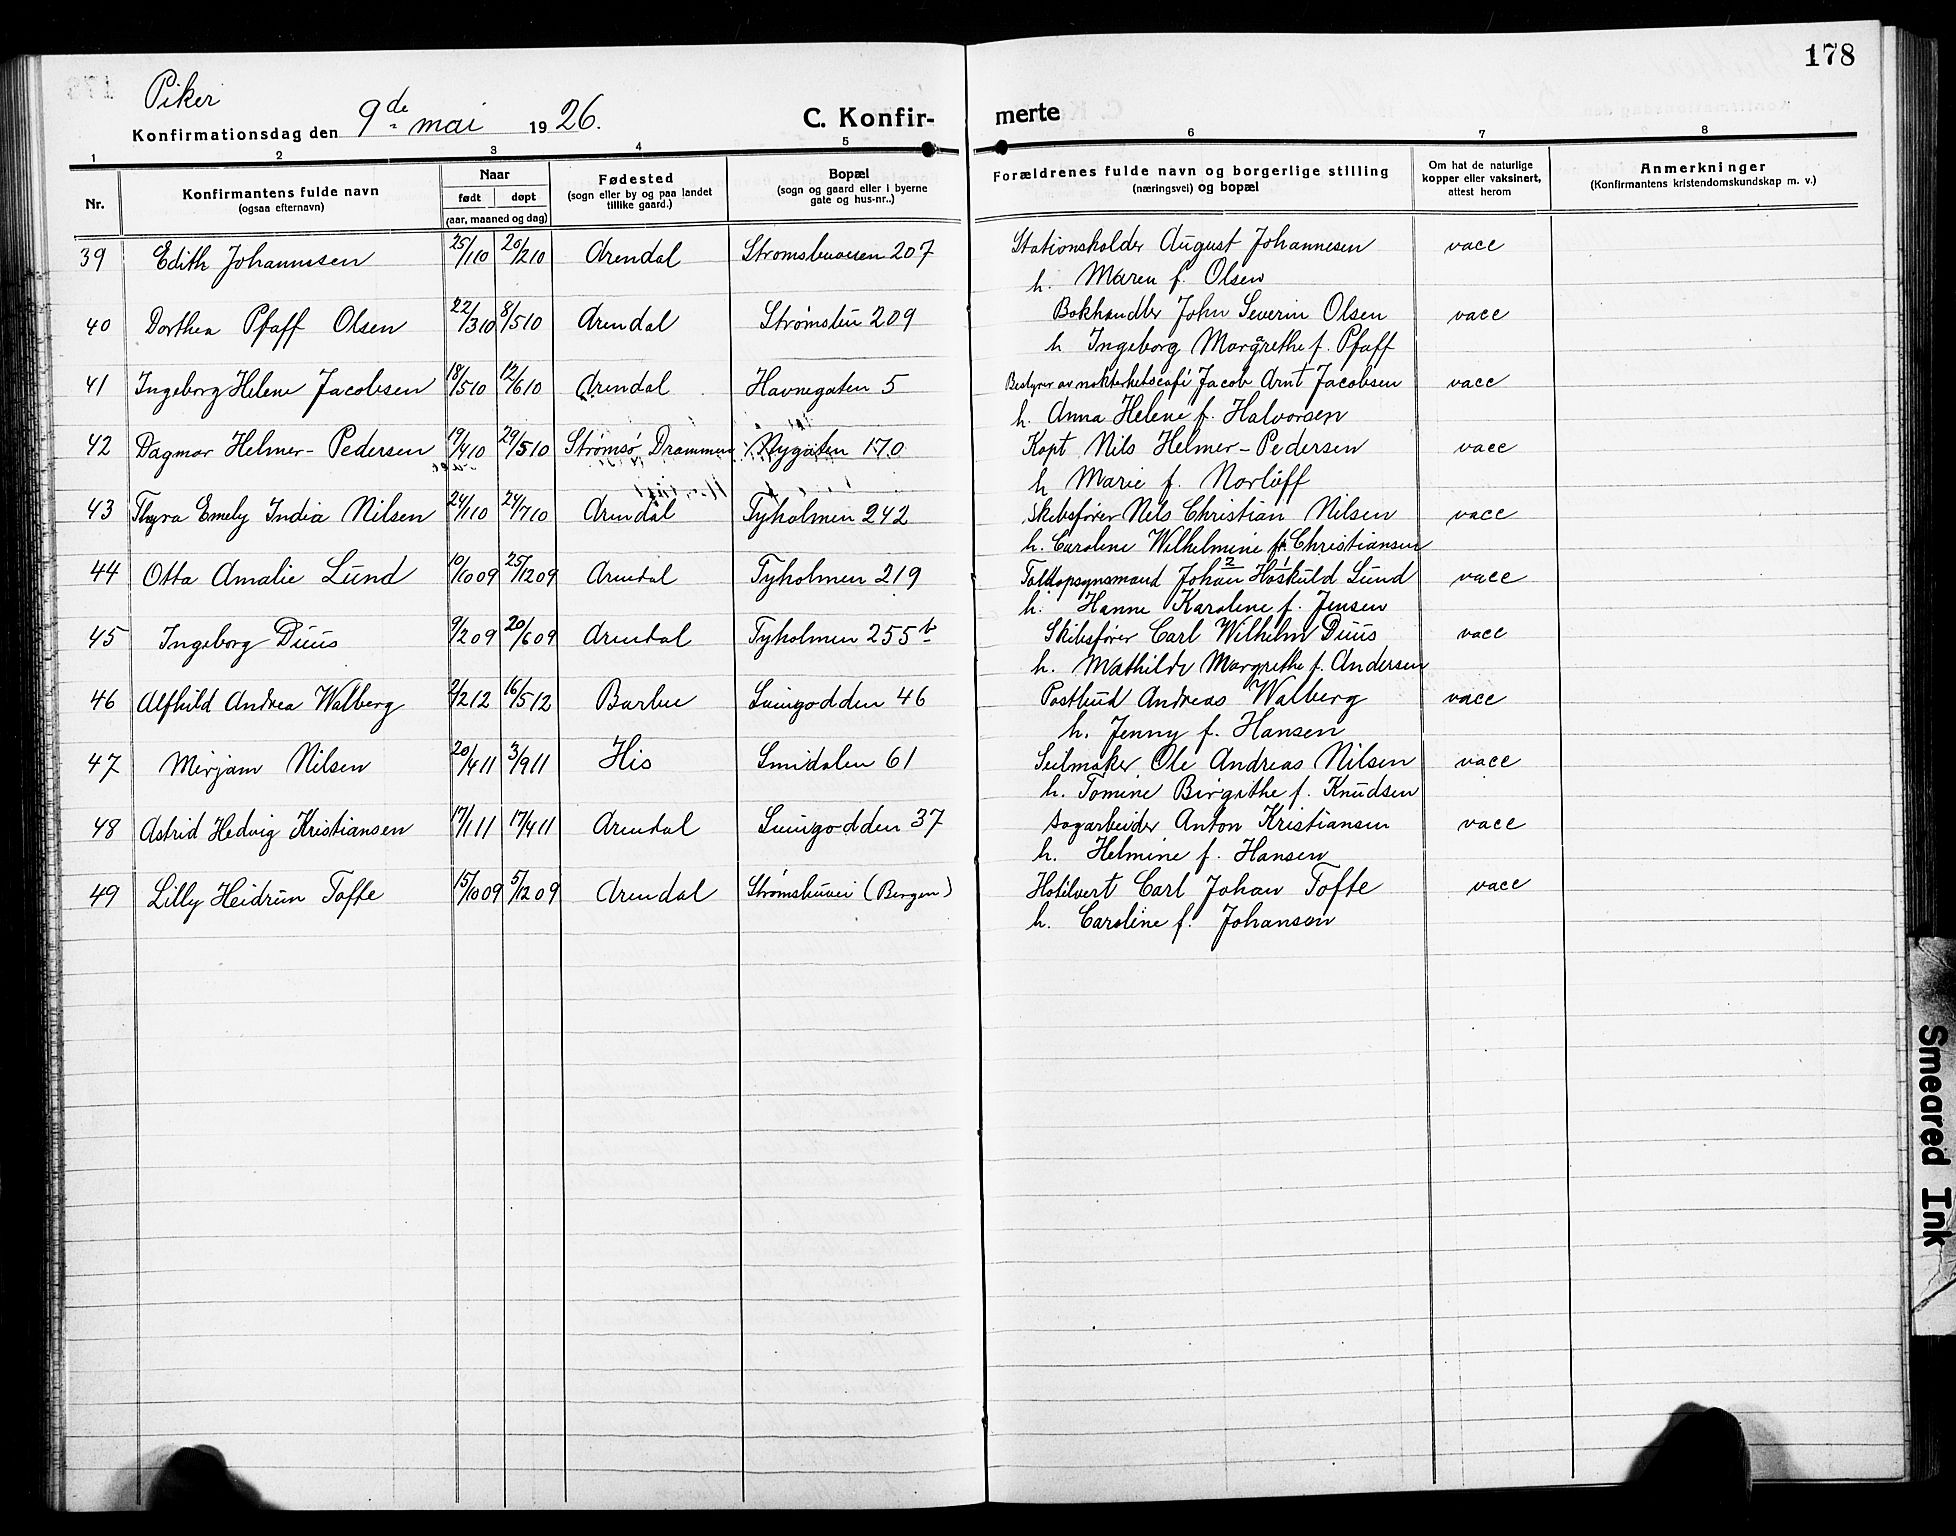 178
Piker
Konfirmationsdag den 9de mai 1926.
C. Konfir-
merte
1 2 3 4 5 6 7 8
Nr.
Konfirmantens fulde navn
(ogsaa efternavn)
Naar
født døpt
(aar, maaned og dag)
Fødested
(sogn eller by og paa landet
tillike gaard.)
Bopæl
(sogn og gaard eller i byerne
gate og hus-nr..)
Forældrenes fulde navn og borgerlige stilling
(næringsvei) og bopæl
Om hat de naturlige
kopper eller vaksinert,
attest herom
Anmerkninger
(Konfirmantens kristendomskundskap m. v.)
39 Edith Johannesen 25/1 10 20/2 10 Arendal Strømsbuveien 207 Stationsholder August Johannesen vacc
h. Maren f. Olsen
40 Dorthea Pfaff Olsen 22/3 10 8/5 10 Arendal Strømsbu 209 Bokhandler John Severin Olsen vacc
h Ingeborg Margrethe f. Pfaff
41 Ingeborg Helene Jacobsen 18/5 10 12/6 10 Arendal Havnegaten 5 Bestyrer av Jacob Arnt Jacobsen vacc
h. Anna Helene f. Halvorsen
42 Dagmar Helmer-Pedersen 19/4 10 29/5 10 Strømsø, Drammen Nygaten 170 Kapt Nils Helmer-Pedersen vacc
h Marie f. Norløff
43 Thyra Emely India Nilsen 24/1 10 24/7 10 Arendal Tyholmen 242 Skibsfører Nils Christian Nilsen vacc
h. Caroline Wilhelmine f. Christiansen
44 Otta Amalie Lund 10/10 09 25/12 09 Arendal Tyholmen 219 Toldopsynsmand Johan Høskuld Lund vacc
h. Hanne Karoline f. Jensen
45 Ingeborg Duus 9/2 09 20/6 09 Arendal Tyholmen 255 b Skibsfører Carl Wilhelm Duus vacc
h. Mathilde Margrethe f. Andersen
46 Alfhild Andrea Walberg 2/2 12 16/5 12 Barbu Suingodden 46 Postbud Andreas Walberg vacc
h. Jenny f. Hansen
47 Mirjam Nilsen 20/4 11 3/9 11 His Smidalen 61 Seilmaker Ole Andreas Nilsen vacc
h. Tomine Birgithe f. Knudsen
48 Astrid Hedvig Kristiansen 17/1 11 17/4 11 Arendal Suingodden 37 Sagarbeider Anton Kristiansen vacc
h. Helmine f. Hansen
49 Lilly Heidrun Tofte 15/10 09 5/12 09 Arendal Strømsbuvei (Bergen) Hotilvert Carl Johan Tofte vacc
h. Caroline f. Johanson
Smeared Ink